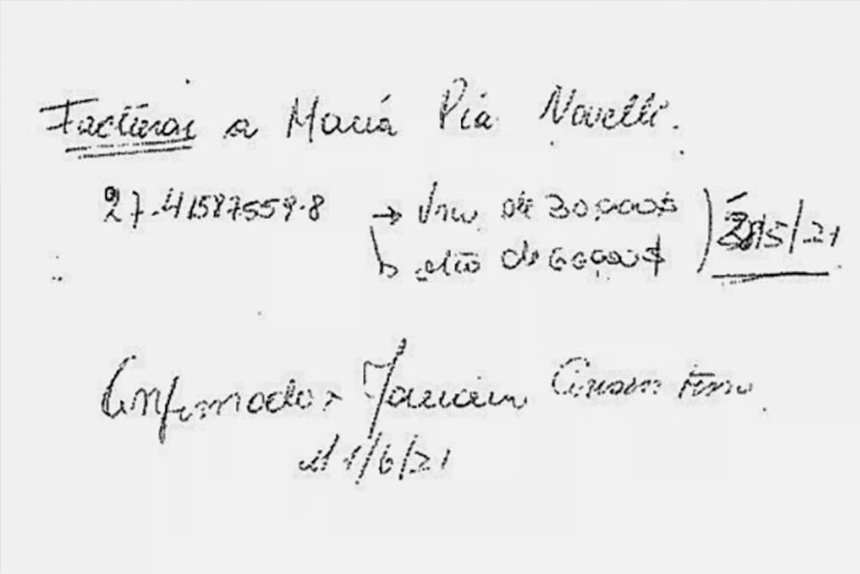 Facturas a María Pía Novelli.
27-41587559-8 → Una de 30,000$
otra de 60,000$
/5/21
Confirmado x
el 1/6/21